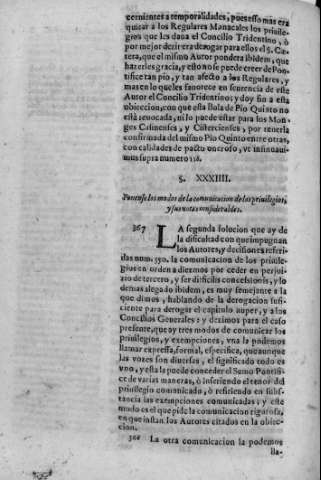 cernientes a temporalidades, pues esso mas era
quitar a los Regulares Monacales los privile-
gios que les dava el Concilio Tridentino, ò
por mejor dezir era derogar para ellos el §. Cæ-
tera, que el mismo Autor pondera ibidem, que
hazerles gracia, y esto no se puede creer de Pon-
tifice tan pio, y tan afecto a los Regulares, y
mas en lo que les favorece en sentencia de este
Autor el Concilio Tridentino; y doy fin a esta
obieccion, con que esta Bola de Pio Quinto no
està revocada, ni lo puede estar para los Mon-
ges Casinenses, y Cistercienses, por tenerla
confirmada del mismo Pio Quinto entre otras,
con calidades de pacto oneroso, vt insinuavi-
mus supra numero 318.
§. XXXIIII.
Ponense los modos de la comunicacion de los privilegios,
y sus notas considerables.
367 LA segunda solucion que ay de
la dificultad con que impugnan
los Autores, y decisiones referi-
das num. 350. la comunicacion de los privile-
gios en orden a diezmos por ceder en perjui-
zio de tercero, y ser dificilis concessionis, y lo
demas alegado ibidem, es muy semejante a la
que dimos, hablando de la derogacion sufi-
ciente para derogar el capitulo nuper, y a los
Concilios Generales: y dezimos para el caso
presente, que ay tres modos de comunicar los
privilegios, y exempciones, vna la podemos
llamar expressa, formal, especifica, que aunque
las vozes son diversas, el significado todo es
vno, y esta la puede conceder el Sumo Pontifi-
ce de varias maneras, ò infiriendo el tenor del
privilegio comunicado, ò refiriendo en subs-
tancia las exempciones comunicadas, y este
modo es el que pide la comunicacion rigurosa,
en que instan los Autores citados en la obiec-
cion.
368 La otra comunicacion la podemos
lla-